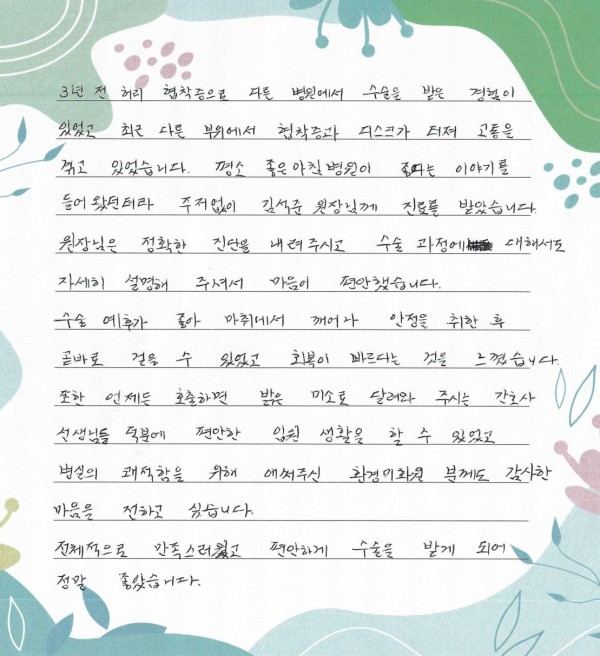 3년 전 허리 협착증으로 다른 병원에서 수술을 받은 경험이
있었고 최근 다른 부위에서 협착증과 디스크가 터져 고통을
겪고 있었습니다. 평소 좋은아침병원이 좋다는 이야기를
들어 왔던터라 주저없이 김석준 원장님께 진료를 받았습니다.
원장님은 정확한 진단을 내려주시고 수술 과정에 대해서도
자세히 설명해 주셔서 마음이 편안했습니다.
수술 예후가 좋아 마취에서 깨어나 안정을 취한 후
곧바로 걸을 수 있었고 회복이 빠르다는 것을 느꼈습니다.
또한 언제든 호출하면 밝은 미소로 달려와 주시는 간호사
선생님들 덕분에 편안한 입원 생활을 할 수 있었고
병실의 쾌적함을 위해 애써주신 환경미화원 분께도 감사한
마음을 전하고 싶습니다.
전체적으로 만족스러웠고 편안하게 수술을 받게 되어
정말 좋았습니다.